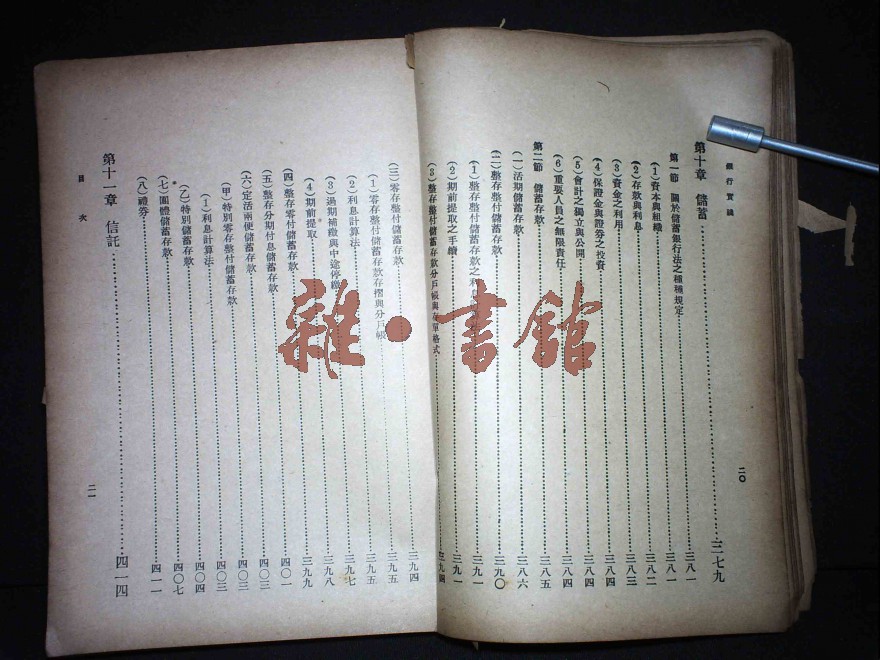 銀行實識
第十章 儲蓄……三七九
第一節 關於儲蓄銀行法之種種規定……三八一
(1)資本與組織……三八一
(2)存款與利息……三八二
(3)資金之利用……三八三
(4)保證金與證券之投資……三八四
(5)會計之獨立與公開……三八四
(6)重要人員之無限責任……三八四
第二節 儲蓄存款……三八五
(一)活期儲蓄存款……三八六
(二)整存整付儲蓄存款……三九〇
(1)整存整付儲蓄存款之利……三九一
(2)期前提取之手續……三九一
(3)整存整付儲蓄存款分戶帳與存單格式……三九四
二〇
(三)零存整付儲蓄存款……三九四
(1)零存整付儲蓄存款存摺與分戶帳……三九五
(2)利息計算法……三九七
(3)過期補繳與中途停繳……三九八
(4)期前提取……三九九
(四)整存零付儲蓄存款……四〇一
(五)整存分期付息儲蓄存款……四〇三
(六)定活兩便儲蓄存款……四〇三
(甲)特別零存整付儲蓄存款……四〇三
(1)利息計算法……四〇四
(乙)特別儲蓄存款……四〇七
(七)團體儲蓄存款
(八)禮券……四一一
第十一章 信託……四一四
目次
二一
雜·書館